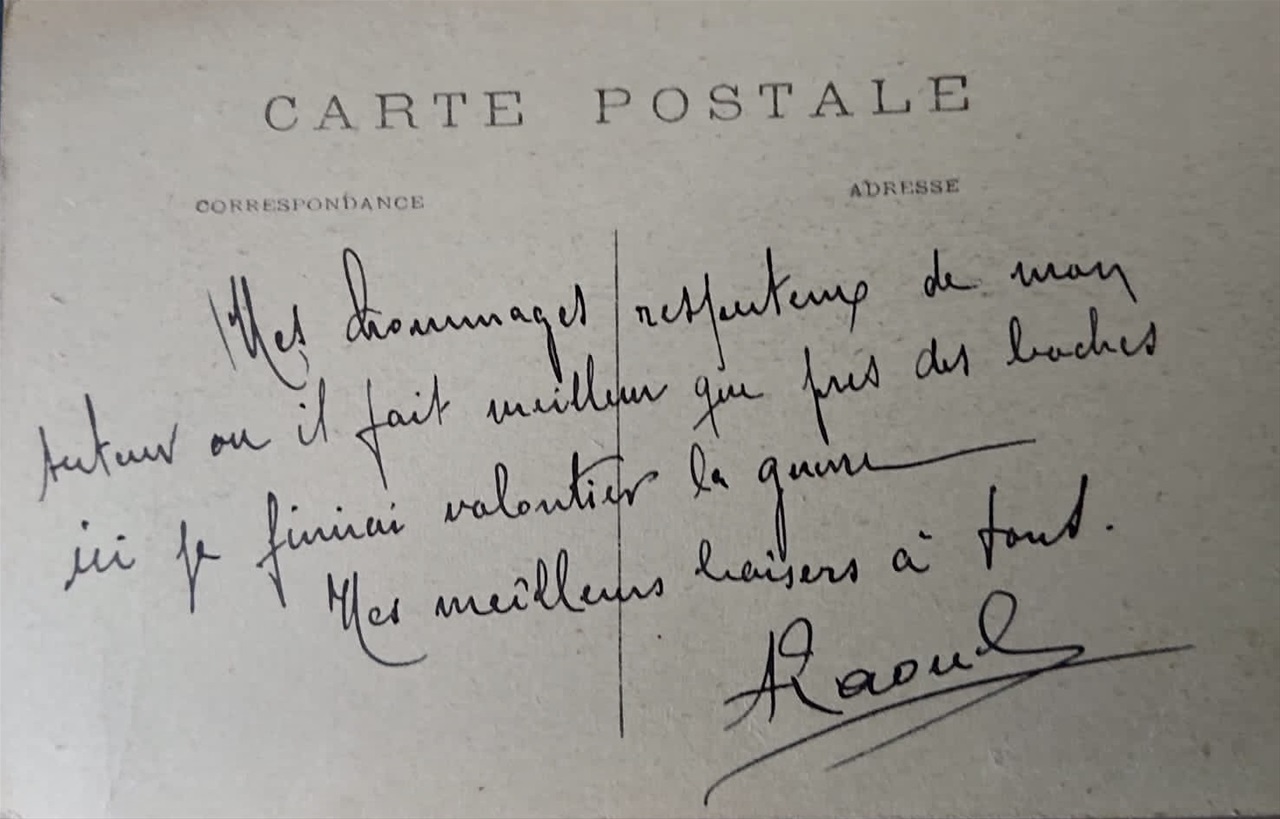 CARTE POSTALE
CORRESPONDANCE
ADRESSE
Mes hommages respecteux de mon
secteur ou il fait meilleur que pres des boches
ici je finirai volontier la guerre
Mes meilleurs baisers à tous.
Raoul